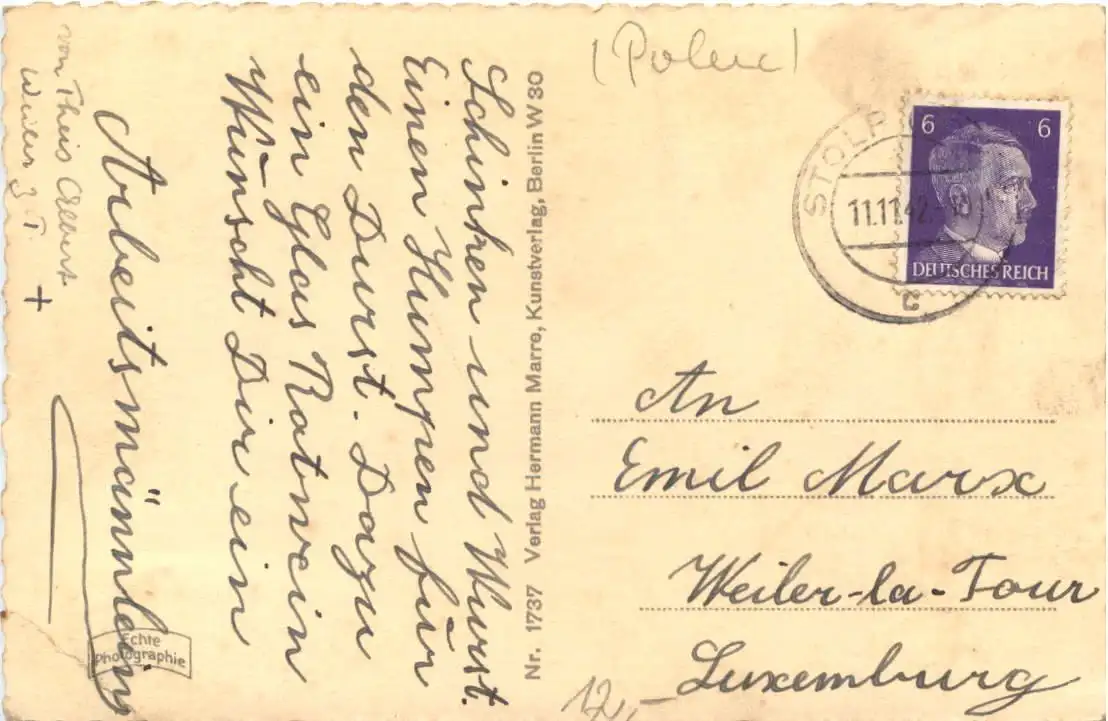 Schinken und Wurst.
Einen Humpen für
den Durst. Dazu
ein Glas Rotwein
Wünscht Dir ein
Arbeitsmännlein
von Theis Albert
Weiler z. T. +
Echte
Photographie
Nr. 1737 Verlag Hermann Marre, Kunstverlag, Berlin W 30
(Polen)
STOLP
11.11.42
c
6 6
DEUTSCHES REICH
An
Emil Marx
Weiler-la-Tour
Luxemburg
12,-